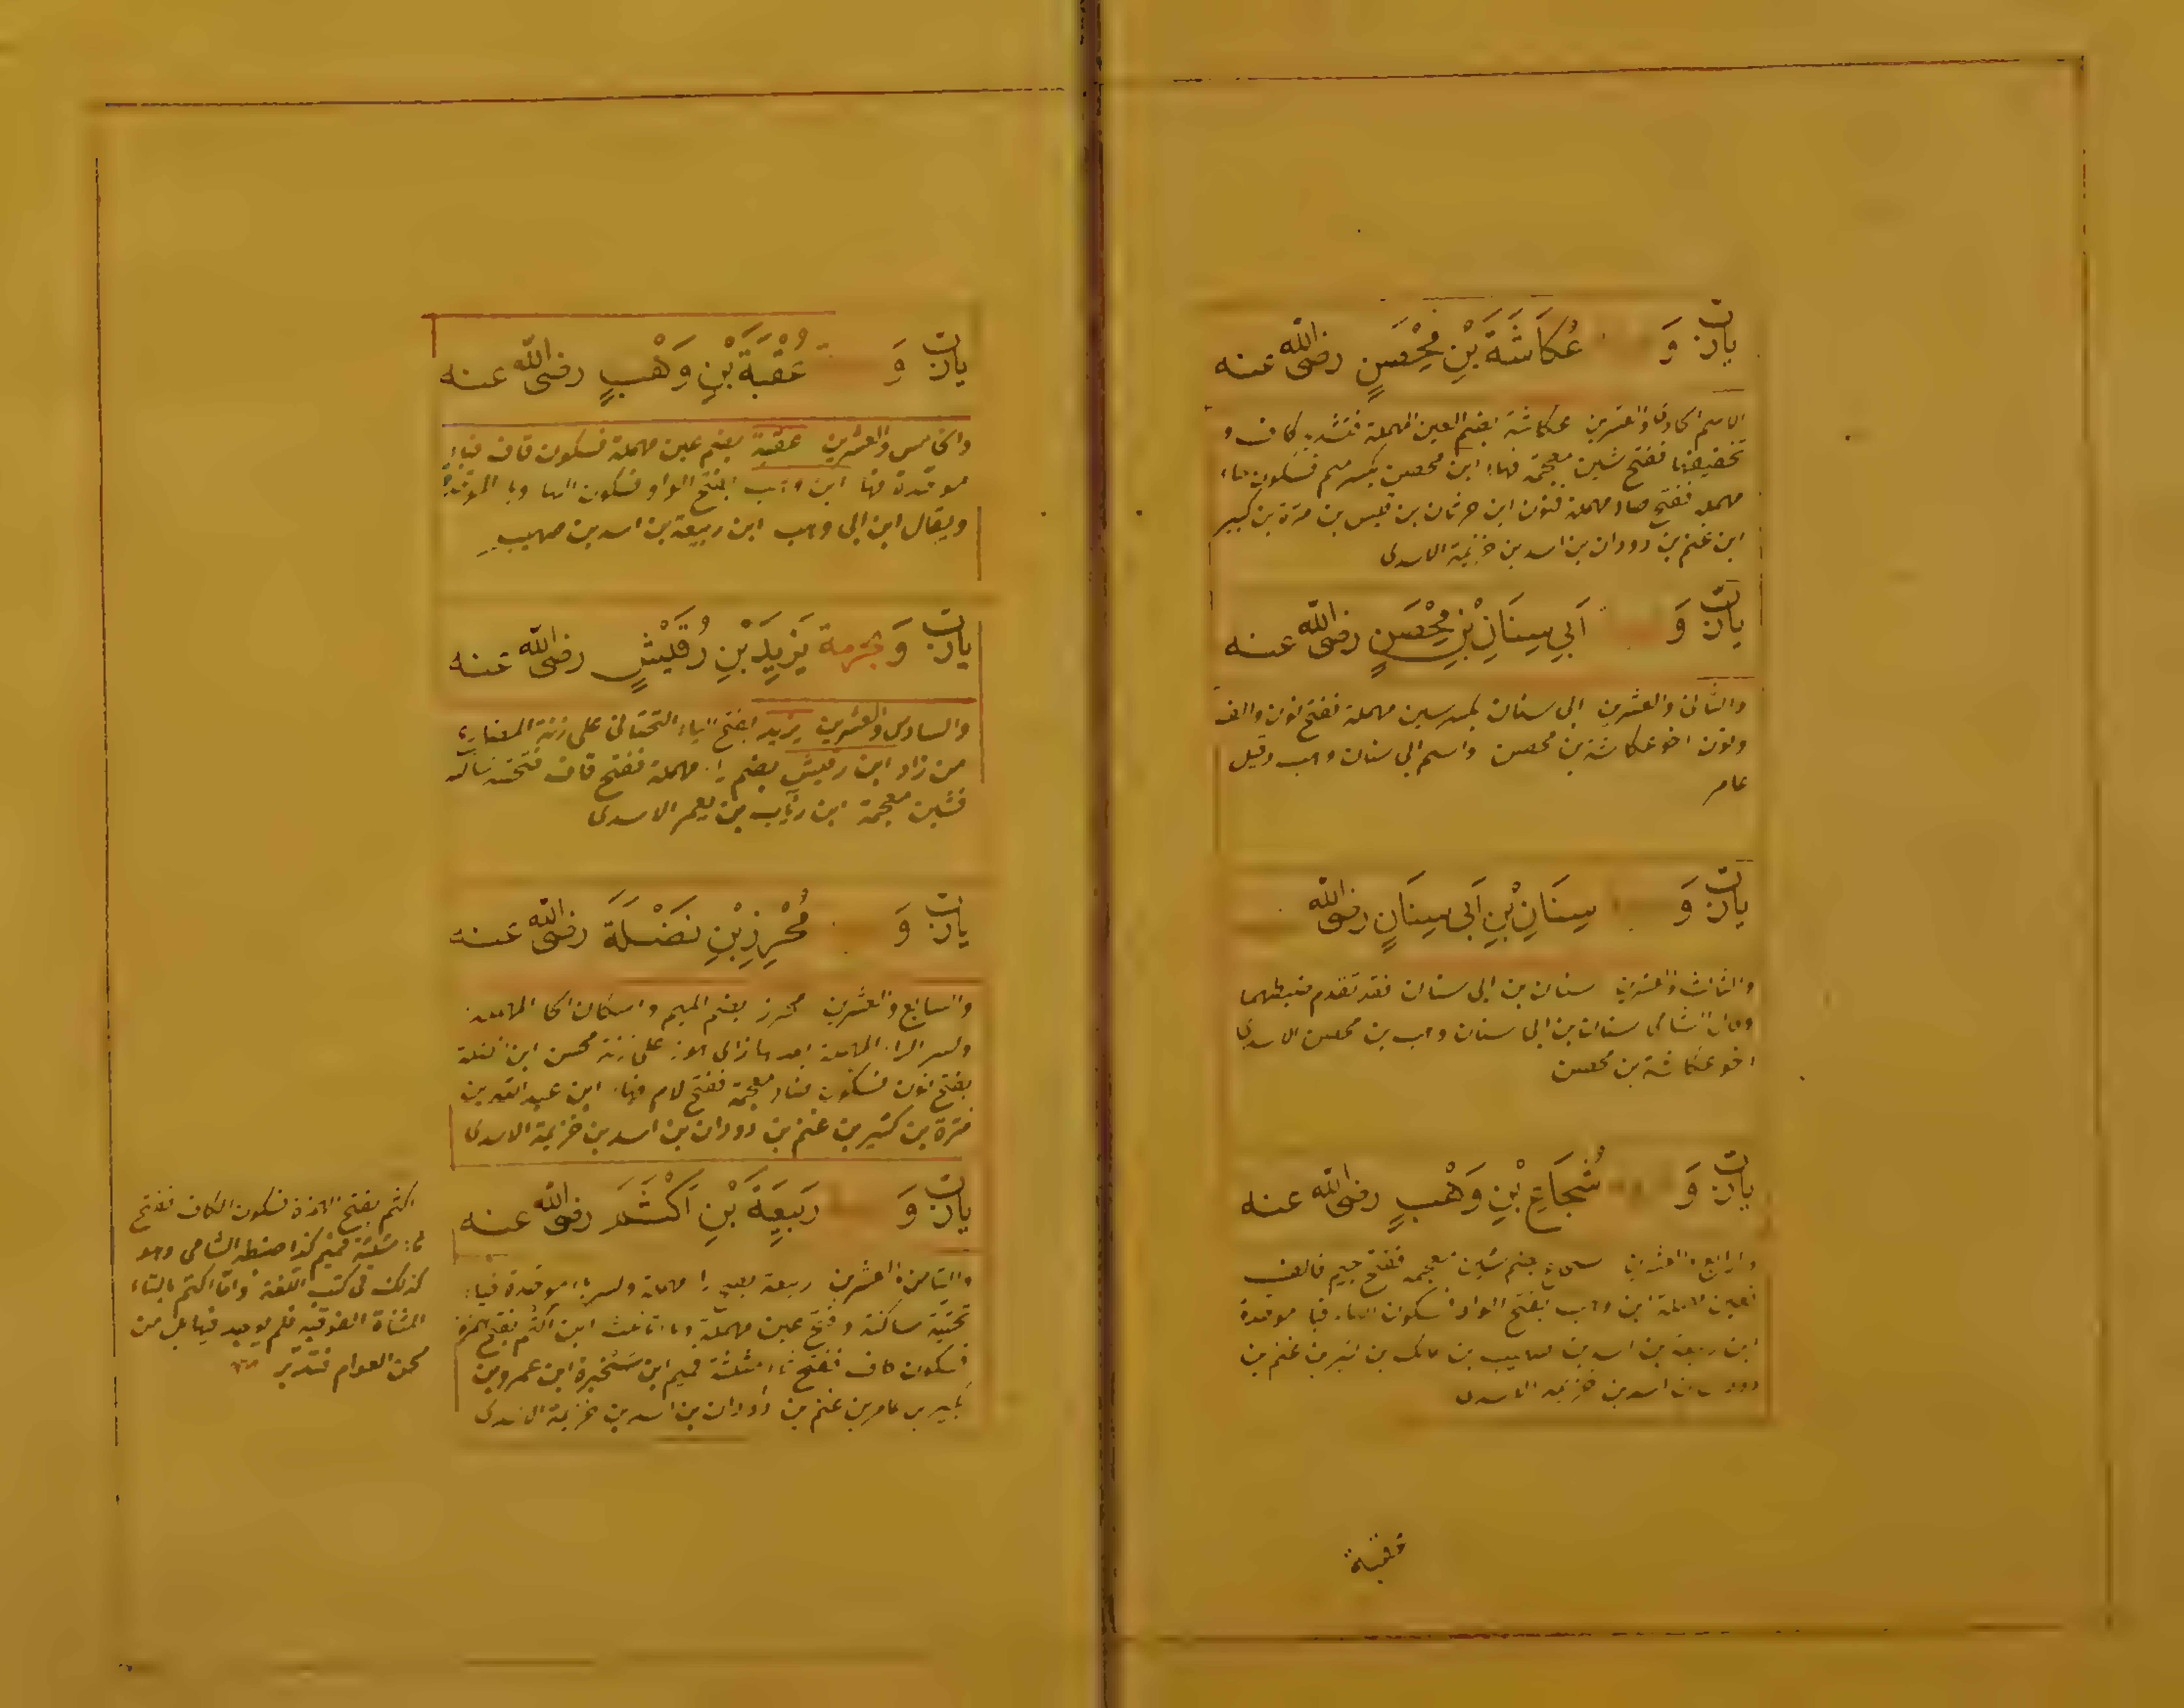 يارب و عُكَاشَةَ بْنِ مِحْصَنٍ رضى الله عنه
الاسم الحادى والعشرين عكاشة بضم العين المهملة فتشديد كاف و
تخفيفها ففتح شين معجمة فهاء ابن محصن بكسر ميم فسكون حاء
مهملة ففتح صاد مهملة فنون ابن حرثان بن قيس بن مرة بن كبير
ابن غنم بن دودان بن اسد بن خزيمة الاسدى
يارب و اَبِي سِنَانِ بْنِ مِحْصَنٍ رضى الله عنه
والثانى والعشرين ابى سنان بكسر سين مهملة ففتح نون والف
ونون اخو عكاشة بن محصن واسم ابى سنان وهب وقيل
عامر
يارب و سِنَانِ بْنِ اَبِى سِنَانٍ رضى الله
والثالث والعشرين سنان بن ابى سنان فقد تقدم ضبطهما
وقال الشامى سنان بن ابى سنان وهب بن محصن الاسدى
اخو عكاشة بن محصن
يارب و شُجَاعِ بْنِ وَهْبٍ رضى الله عنه
والرابع والعشرين بضم شين معجمة ففتح جيم فالف
فعين مهملة ابن وهب بفتح الواو فسكون الهاء فباء موحدة
ابن ربيعة بن اسد بن صهيب بن مالك بن كبير بن غنم بن
دودان بن اسد بن خزيمة الاسدى
عقبة
يارب و عُقْبَةَ بْنِ وَهْبٍ رضى الله عنه
والخامس والعشرين عقبة بضم عين مهملة فسكون قاف فباء
موحدة فهاء ابن وهب بفتح الواو فسكون الهاء وبا الموحدة
ويقال ابن ابى وهب ابن ربيعة بن اسد بن صهيب
يارب و بحرمة يَزِيدَ بْنِ رُقَيْشٍ رضى الله عنه
والسادس والعشرين يزيد بفتح الياء التحتانى على زنة المضارع
من زاد ابن رقيش بضم راء مهملة ففتح قاف فتحتية ساكنة
فشين معجمة ابن رئاب بن يعمر الاسدى
يارب و مُحْرِزِ بْنِ نَضْلَةَ رضى الله عنه
والسابع والعشرين محرز بضم الميم واسكان الحا المهملة
وكسر الراء المهملة بعدها زاى هوز على زنة محسن ابن نضلة
بفتح نون فسكون ضاد معجمة ففتح لام فهاء ابن عبد الله بن
مرة بن كبير بن غنم بن دودان بن اسد بن خزيمة الاسدى
يارب و رَبِيعَةَ بْنِ اَكْثَمَ رضى الله عنه
والثامن والعشرين ربيعة بفتح را مهملة وكسر باء موحدة فياء
تحتية ساكنة وفتح عين مهملة وهاء تانيث ابن اكثم بفتح همزة
فسكون كاف ففتح ثاء مثلثة فميم ابن سخبرة ابن عمرو بن
بكير بن عامر بن غنم بن دودان بن اسد بن خزيمة الاسدى
اكثم بفتح الهمزة فسكون الكاف ففتح
ثاء مثلثة فميم كذا ضبطه الشامى وهو
كذلك فى كتب اللغة واما اكتم بالتاء
المثناة الفوقية فلم يوجد فيها بل من
لحن العوام فتدبر